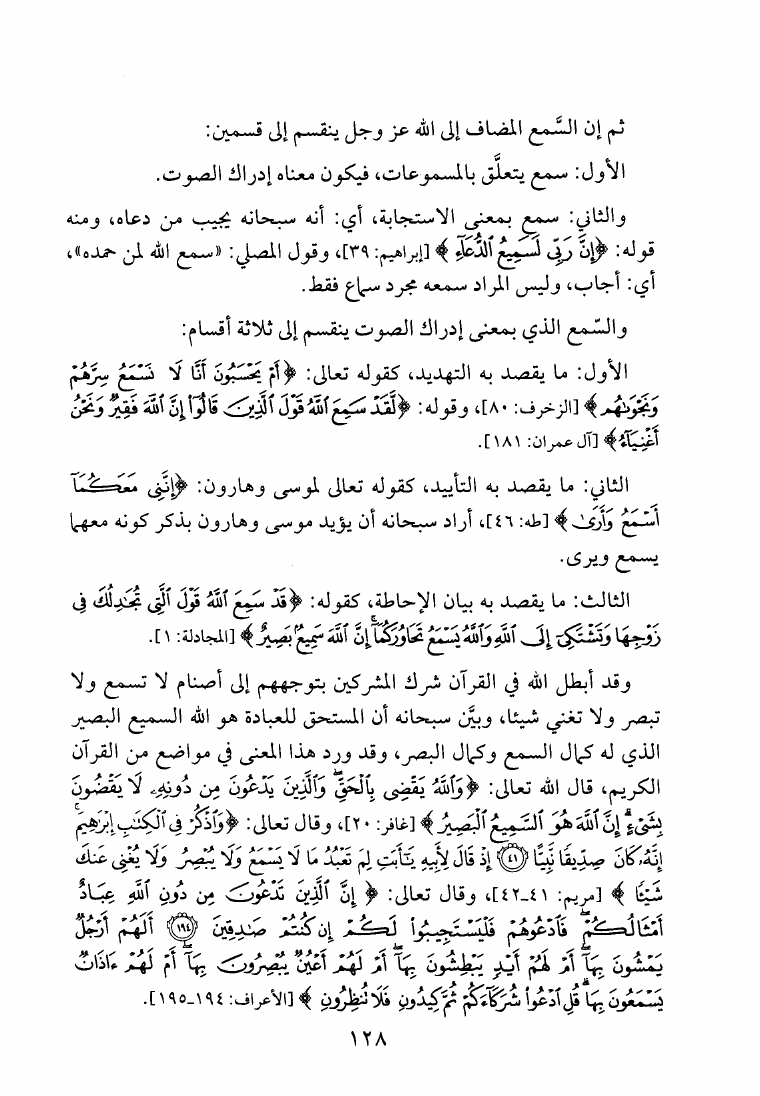 ثم إن السَّمع المضاف إلى الله عز وجل ينقسم إلى قسمين:
الأول: سمع يتعلَّق بالمسموعات، فيكون معناه إدراك الصوت.
والثاني: سمع بمعنى الاستجابة، أي: أنه سبحانه يجيب من دعاه، ومنه
قوله: ﴿إِنَّ رَبِّي لَسَمِيعُ ٱلدُّعَآءِ﴾ [إبراهيم: ٣٩]، وقول المصلي: «سمع الله لمن حمده»،
أي: أجاب، وليس المراد سمعه مجرد سماع فقط.
والسّمع الذي بمعنى إدراك الصوت ينقسم إلى ثلاثة أقسام:
الأول: ما يقصد به التهديد، كقوله تعالى: ﴿أَمْ يَحْسَبُونَ أَنَّا لَا نَسْمَعُ سِرَّهُمْ
وَنَجْوَىٰهُم﴾ [الزخرف: ٨٠]، وقوله: ﴿لَّقَدْ سَمِعَ ٱللَّهُ قَوْلَ ٱلَّذِينَ قَالُوٓا۟ إِنَّ ٱللَّهَ فَقِيرٌ وَنَحْنُ
أَغْنِيَآءُ﴾ [آل عمران: ١٨١].
الثاني: ما يقصد به التأييد، كقوله تعالى لموسى وهارون: ﴿إِنَّنِى مَعَكُمَآ
أَسْمَعُ وَأَرَىٰ﴾ [طه: ٤٦]، أراد سبحانه أن يؤيد موسى وهارون بذكر كونه معهما
يسمع ويرى.
الثالث: ما يقصد به بيان الإحاطة، كقوله: ﴿قَدْ سَمِعَ ٱللَّهُ قَوْلَ ٱلَّتِى تُجَٰدِلُكَ فِى
زَوْجِهَا وَتَشْتَكِىٓ إِلَى ٱللَّهِ وَٱللَّهُ يَسْمَعُ تَحَاوُرَكُمَآ ۚ إِنَّ ٱللَّهَ سَمِيعٌۢ بَصِيرٌ﴾ [المجادلة: ١].
وقد أبطل الله في القرآن شرك المشركين بتوجههم إلى أصنام لا تسمع ولا
تبصر ولا تغني شيئا، وبيَّن سبحانه أن المستحق للعبادة هو الله السميع البصير
الذي له كمال السمع وكمال البصر، وقد ورد هذا المعنى في مواضع من القرآن
الكريم، قال الله تعالى: ﴿وَٱللَّهُ يَقْضِى بِٱلْحَقِّ ۖ وَٱلَّذِينَ يَدْعُونَ مِن دُونِهِۦ لَا يَقْضُونَ
بِشَىْءٍ ۗ إِنَّ ٱللَّهَ هُوَ ٱلسَّمِيعُ ٱلْبَصِيرُ﴾ [غافر: ٢٠]، وقال تعالى: ﴿وَٱذْكُرْ فِى ٱلْكِتَٰبِ إِبْرَٰهِيمَ ۚ
إِنَّهُۥ كَانَ صِدِّيقًا نَّبِيًّا ﴿٤١﴾ إِذْ قَالَ لِأَبِيهِ يَٰٓأَبَتِ لِمَ تَعْبُدُ مَا لَا يَسْمَعُ وَلَا يُبْصِرُ وَلَا يُغْنِى عَنكَ
شَيْـًٔا﴾ [مريم: ٤١-٤٢]، وقال تعالى: ﴿إِنَّ ٱلَّذِينَ تَدْعُونَ مِن دُونِ ٱللَّهِ عِبَادٌ
أَمْثَالُكُمْ ۖ فَٱدْعُوهُمْ فَلْيَسْتَجِيبُوا۟ لَكُمْ إِن كُنتُمْ صَٰدِقِينَ ﴿١٩٤﴾ أَلَهُمْ أَرْجُلٌ
يَمْشُونَ بِهَآ ۖ أَمْ لَهُمْ أَيْدٍ يَبْطِشُونَ بِهَآ ۖ أَمْ لَهُمْ أَعْيُنٌ يُبْصِرُونَ بِهَآ ۖ أَمْ لَهُمْ ءَاذَانٌ
يَسْمَعُونَ بِهَا ۗ قُلِ ٱدْعُوا۟ شُرَكَآءَكُمْ ثُمَّ كِيدُونِ فَلَا تُنظِرُونِ﴾ [الأعراف: ١٩٤-١٩٥].
١٢٨